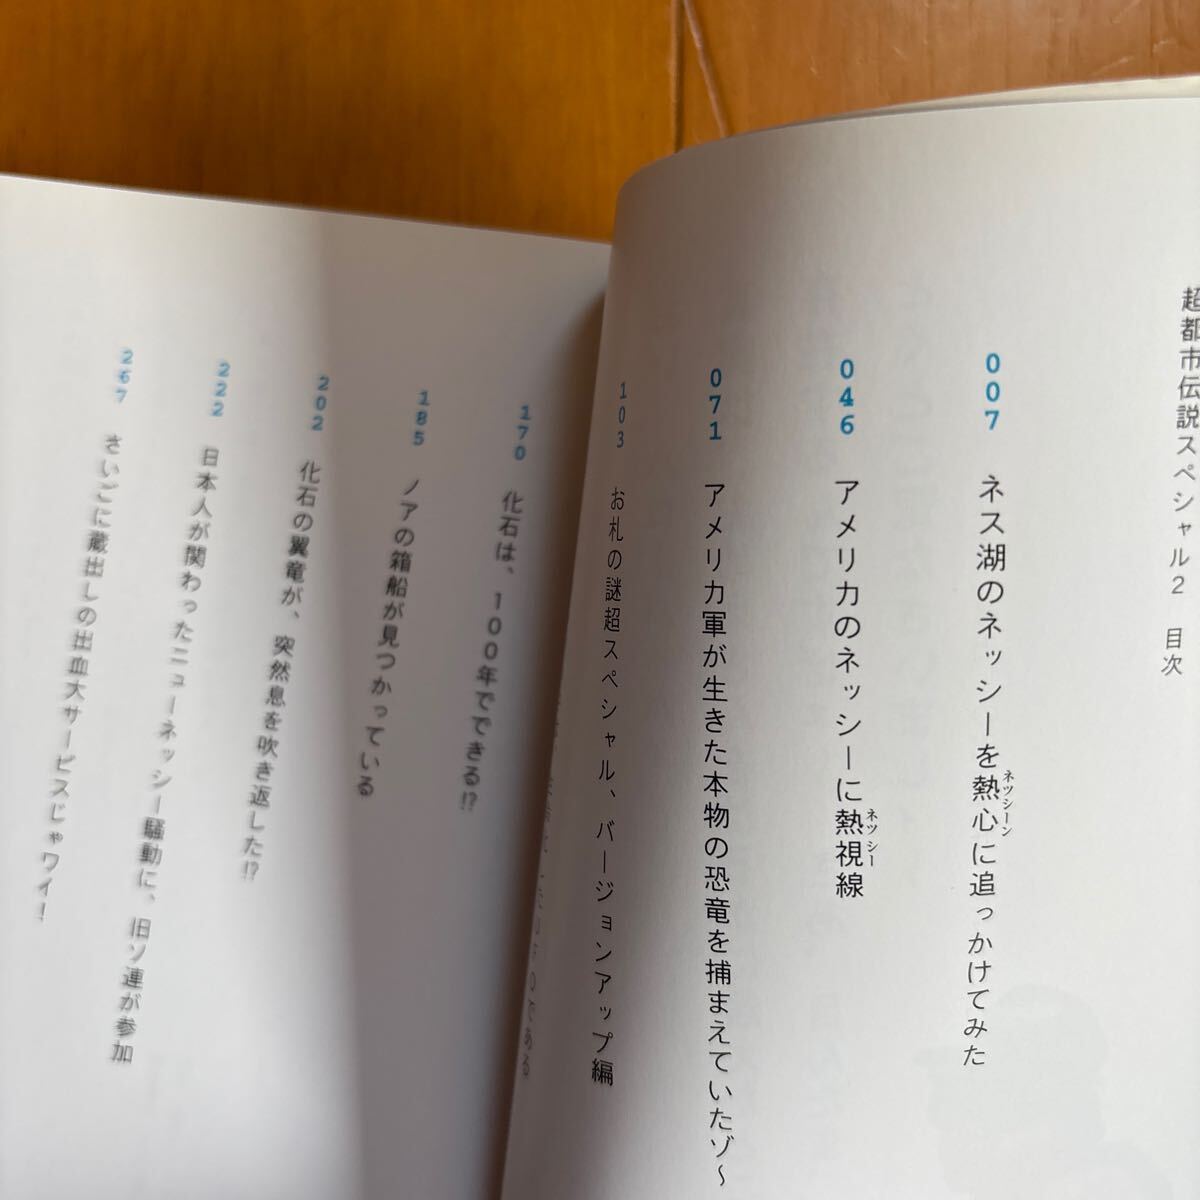 超都市伝説スペシャル2 目次
007 ネス湖のネッシーを熱心に追っかけてみた
ネツシーン
046 アメリカのネッシーに熱視線
ネツシー
071 アメリカ軍が生きた本物の恐竜を捕まえていたゾ〜
103 お札の謎超スペシャル、バージョンアップ編
170 化石は、100年でできる!?
185 ノアの箱船が見つかっている
202 化石の翼竜が、突然息を吹き返した!?
222 日本人が関わったニューネッシー騒動に、旧ソ連が参加
267 さいごに蔵出しの出血大サービスじゃワイ!